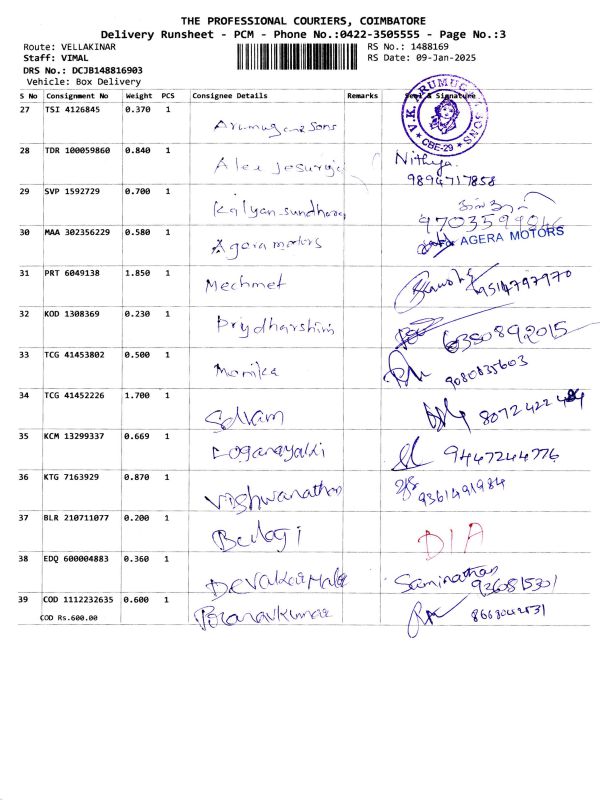 THE PROFESSIONAL COURIERS, COIMBATORE
Delivery Runsheet - PCM - Phone No.:0422-3505555 - Page No.:3
Route: VELLAKINAR RS No.: 1488169
Staff: VIMAL RS Date: 09-Jan-2025
DRS No.: DCJB148816903
Vehicle: Box Delivery
S No Consignment No Weight PCS Consignee Details Remarks Seal & Signature
27 TSI 4126845 0.370 1 Arumugam sons V.K. ARUMUGA SONS CBE-29
28 TDR 100059860 0.840 1 Alex Jesuraja Nithya
9894717858
29 SVP 1592729 0.700 1 Kalyan sundharam
30 MAA 302356229 0.580 1 Agera motors AGERA MOTORS
31 PRT 6049138 1.850 1 Mechmet 9514797970
32 KOD 1308369 0.230 1 Priydharshini 6350892015
33 TCG 41453802 0.500 1 Monika 9080835603
34 TCG 41452226 1.700 1 Selvam
35 KCM 13299337 0.669 1 Loganayakki 9447244776
36 KTG 7163929 0.870 1 Vishwanathan 9361491984
37 BLR 210711077 0.200 1 Balaji D/A
38 EDQ 600004883 0.360 1 Devakarmala Saminathan
9260815301
39 COD 1112232635 0.600 1 Pranavkumar
COD Rs.600.00